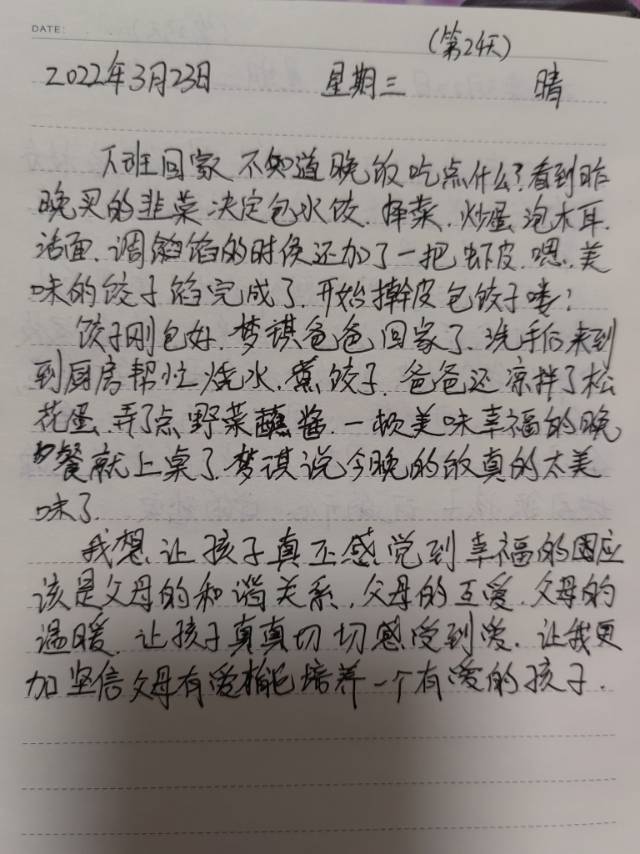 DATE:
(第24天)
2022年3月23日 星期三 晴
下班回家 不知道晚饭吃点什么?看到昨
晚买的韭菜 决定包水饺.择菜.炒蛋 泡木耳.
活面.调馅馅的时候还加了一把虾皮.嗯.美
味的饺子馅完成了.开始擀皮包饺子喽!
饺子刚包好.梦琪爸爸回家了.洗手后来到
到厨房帮忙烧水.煮饺子.爸爸还凉拌了松
花蛋.弄了点野菜蘸酱.一顿美味幸福的晚
餐就上桌了.梦琪说今晚的饭真的太美
味了.
我想让孩子真正感觉到幸福的因应
该是父母的和谐关系.父母的互爱.父母的
温暖.让孩子真真切切感受到爱.让我更
加坚信父母有爱才能培养一个有爱的孩子.